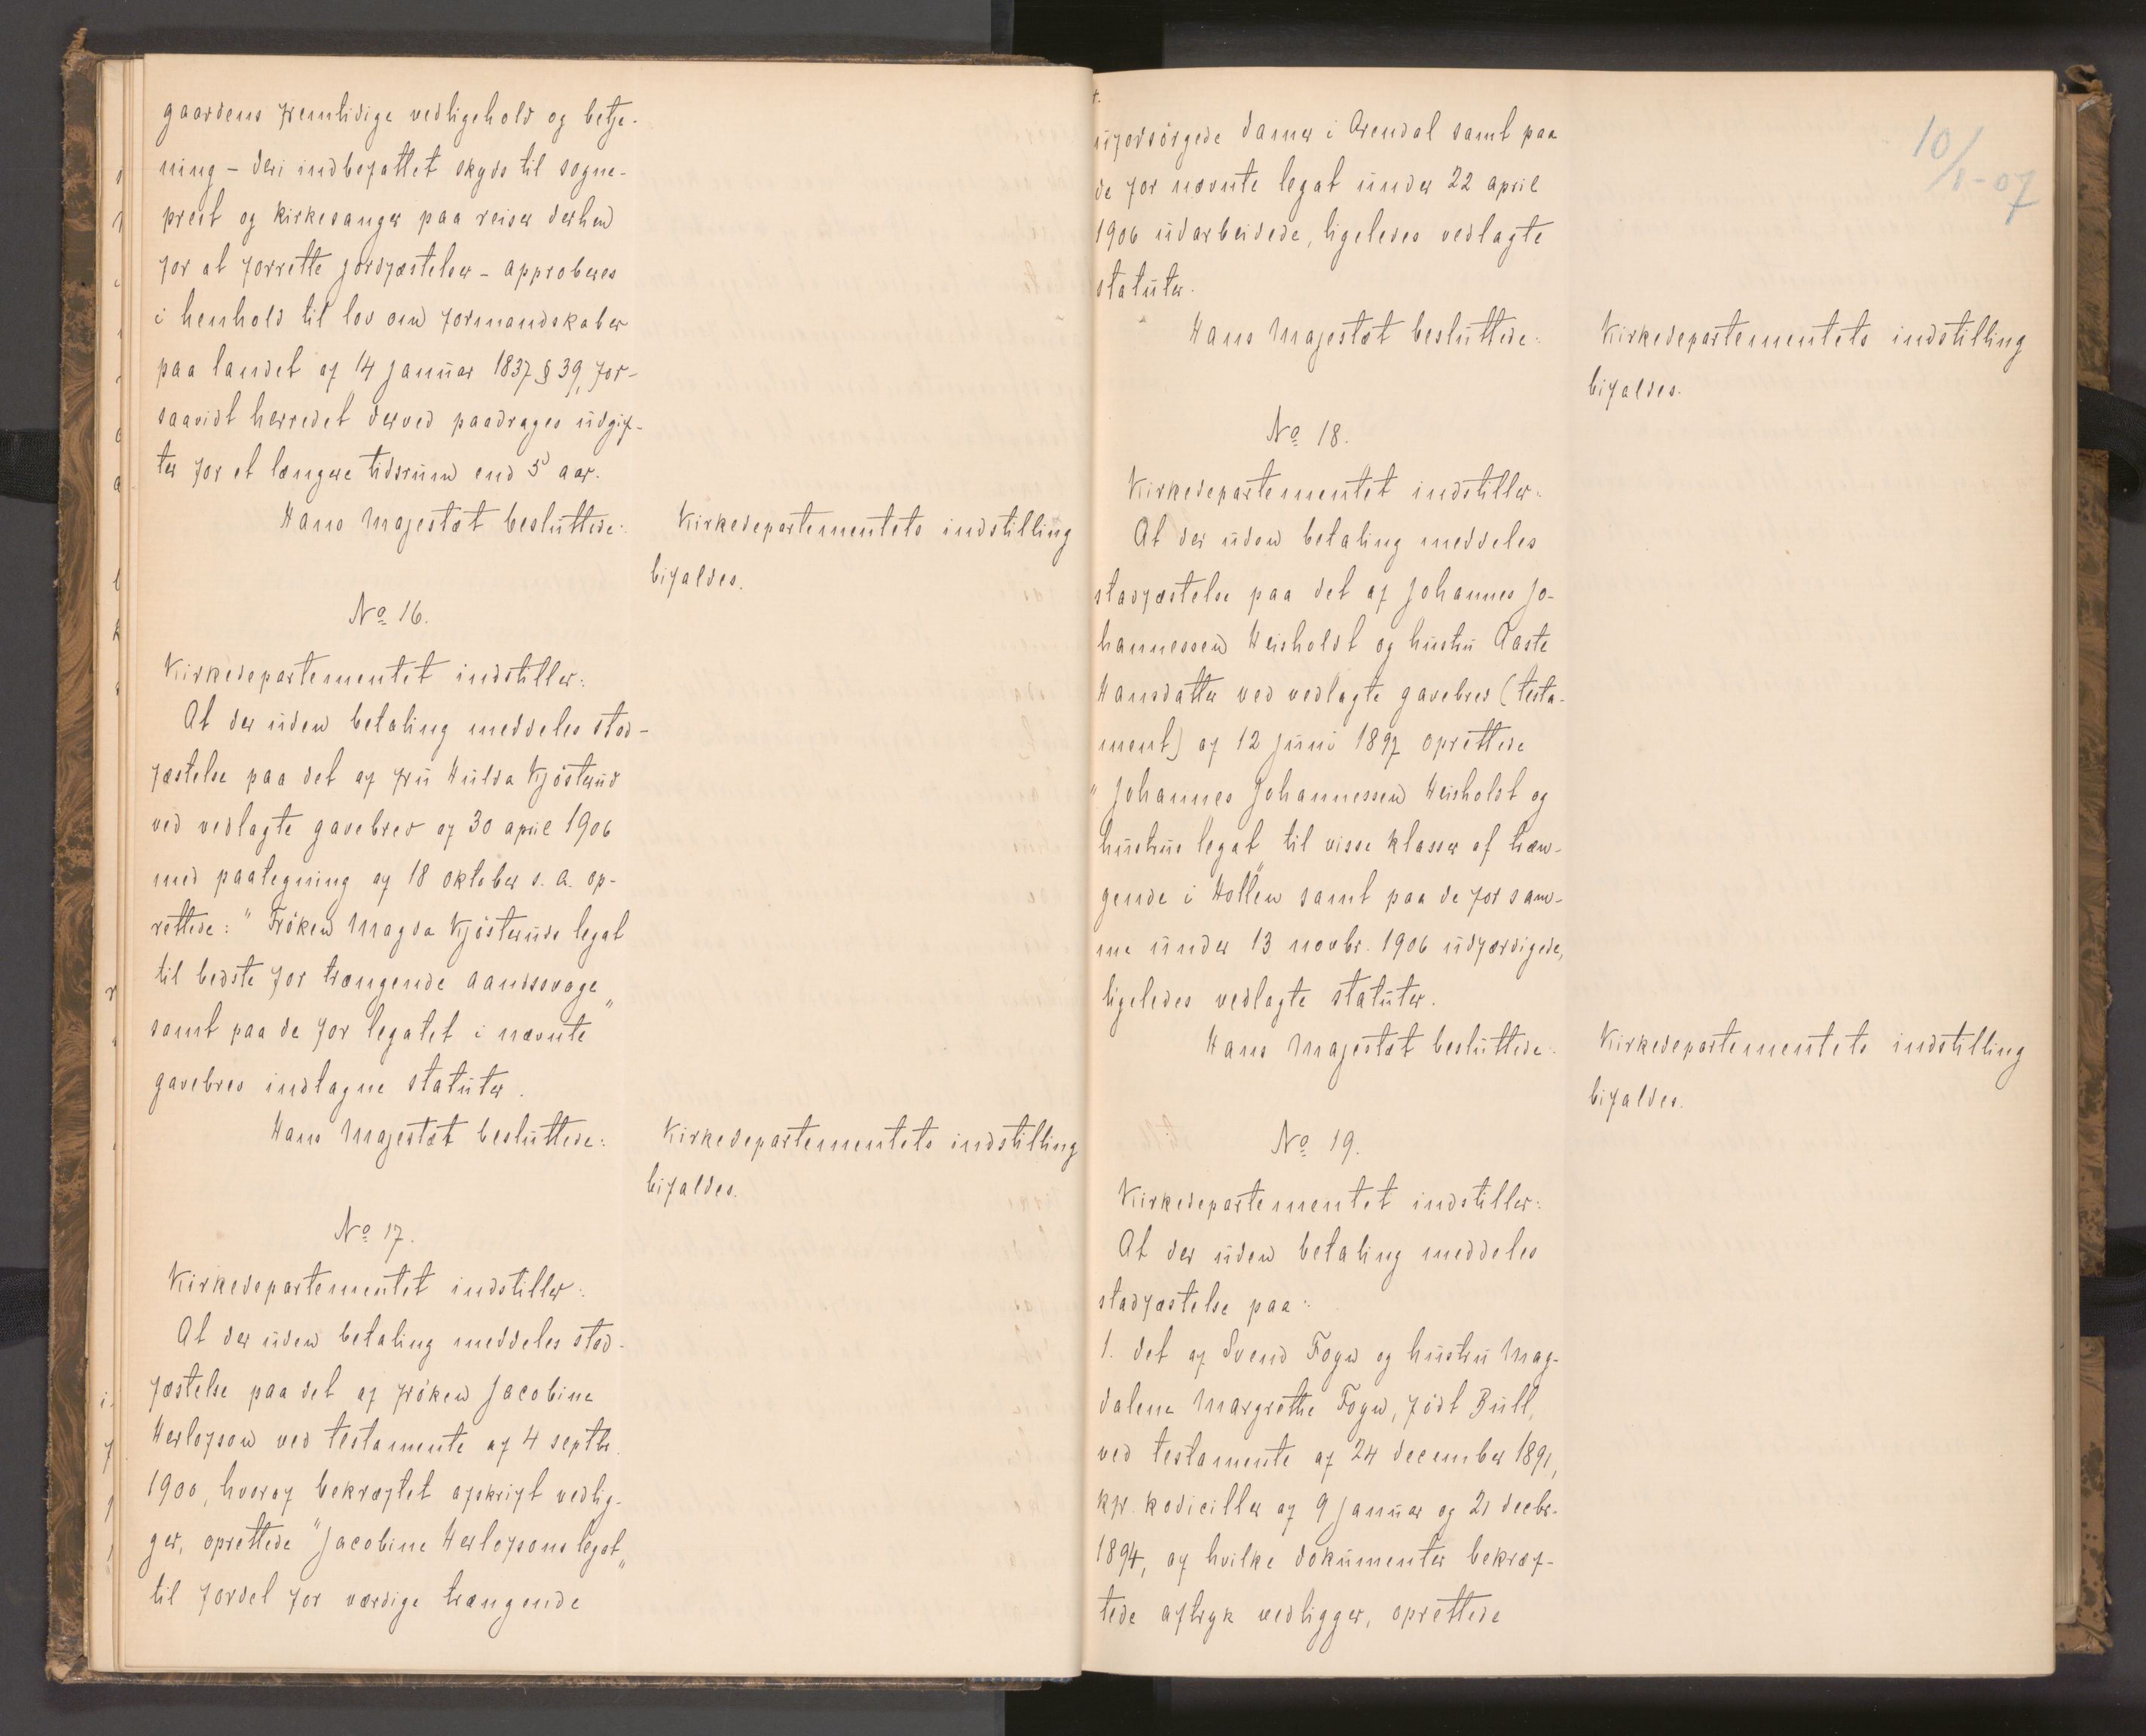 gaardens fremtidige vedligehold og betje-
ning – deri indbefattet skyds til sogne-
prest og kirkesanger paa reiser derhen
for at forrette jordfæstelser – approberes
i henhold til lov om formandskaber
paa landet af 14 januar 1837 § 39, for-
saavidt herredet derved paadrages udgif-
ter for et længere tidsrum end 5 aar.
Hans Majestæt besluttede:
Kirkedepartementets indstilling
bifaldes.
No 16.
Kirkedepartementet indstiller:
At der uden betaling meddeles stad-
fæstelse paa det af fru Hulda Kjøsterud
ved vedlagte gavebrev af 30 april 1906
med paategning af 18 oktober s. a. op-
rettede: "Frøken Magda Kjøsteruds legat
til bedste for trængende aandssvage"
samt paa de for legatet i nævnte
gavebrev indtagne statuter.
Hans Majestæt besluttede:
Kirkedepartementets indstilling
bifaldes.
No 17.
Kirkedepartementet indstiller:
At der uden betaling meddeles stad-
fæstelse paa det af frøken Jacobine
Herlofson ved testamente af 4 septbr.
1900, hvoraf bekræftet afskrift vedlig-
ger, oprettede "Jacobine Herlofsons legat"
til fordel for værdige trængende
uforsørgede damer i Arendal samt paa
de for nævnte legat under 22 april
1906 udarbeidede, ligeledes vedlagte
statuter.
Hans Majestæt besluttede:
Kirkedepartementets indstilling
bifaldes.
10/1-07
No 18.
Kirkedepartementet indstiller:
At der uden betaling meddeles
stadfæstelse paa det af Johannes Jo-
hannessen Heisholdt og hustru Aaste
Hansdatter ved vedlagte gavebrev (testa-
ment) af 12 juni 1897 oprettede
"Johannes Johannessen Heisholdt og
hustrus legat" til visse klasser af træn-
gende i Hollen samt paa de for sam-
me under 13 novbr. 1906 udfærdigede,
ligeledes vedlagte statuter.
Hans Majestæt besluttede:
Kirkedepartementets indstilling
bifaldes.
No 19.
Kirkedepartementet indstiller:
At der uden betaling meddeles
stadfæstelse paa:
1. det af Svend Foyn og hustru Mag-
dalene Margrethe Foyn, født Bull,
ved testamente af 24 december 1891,
kfr. kodiciller af 9 januar og 21 decbr.
1894, af hvilke dokumenter bekræf-
tede aftryk vedligger, oprettede